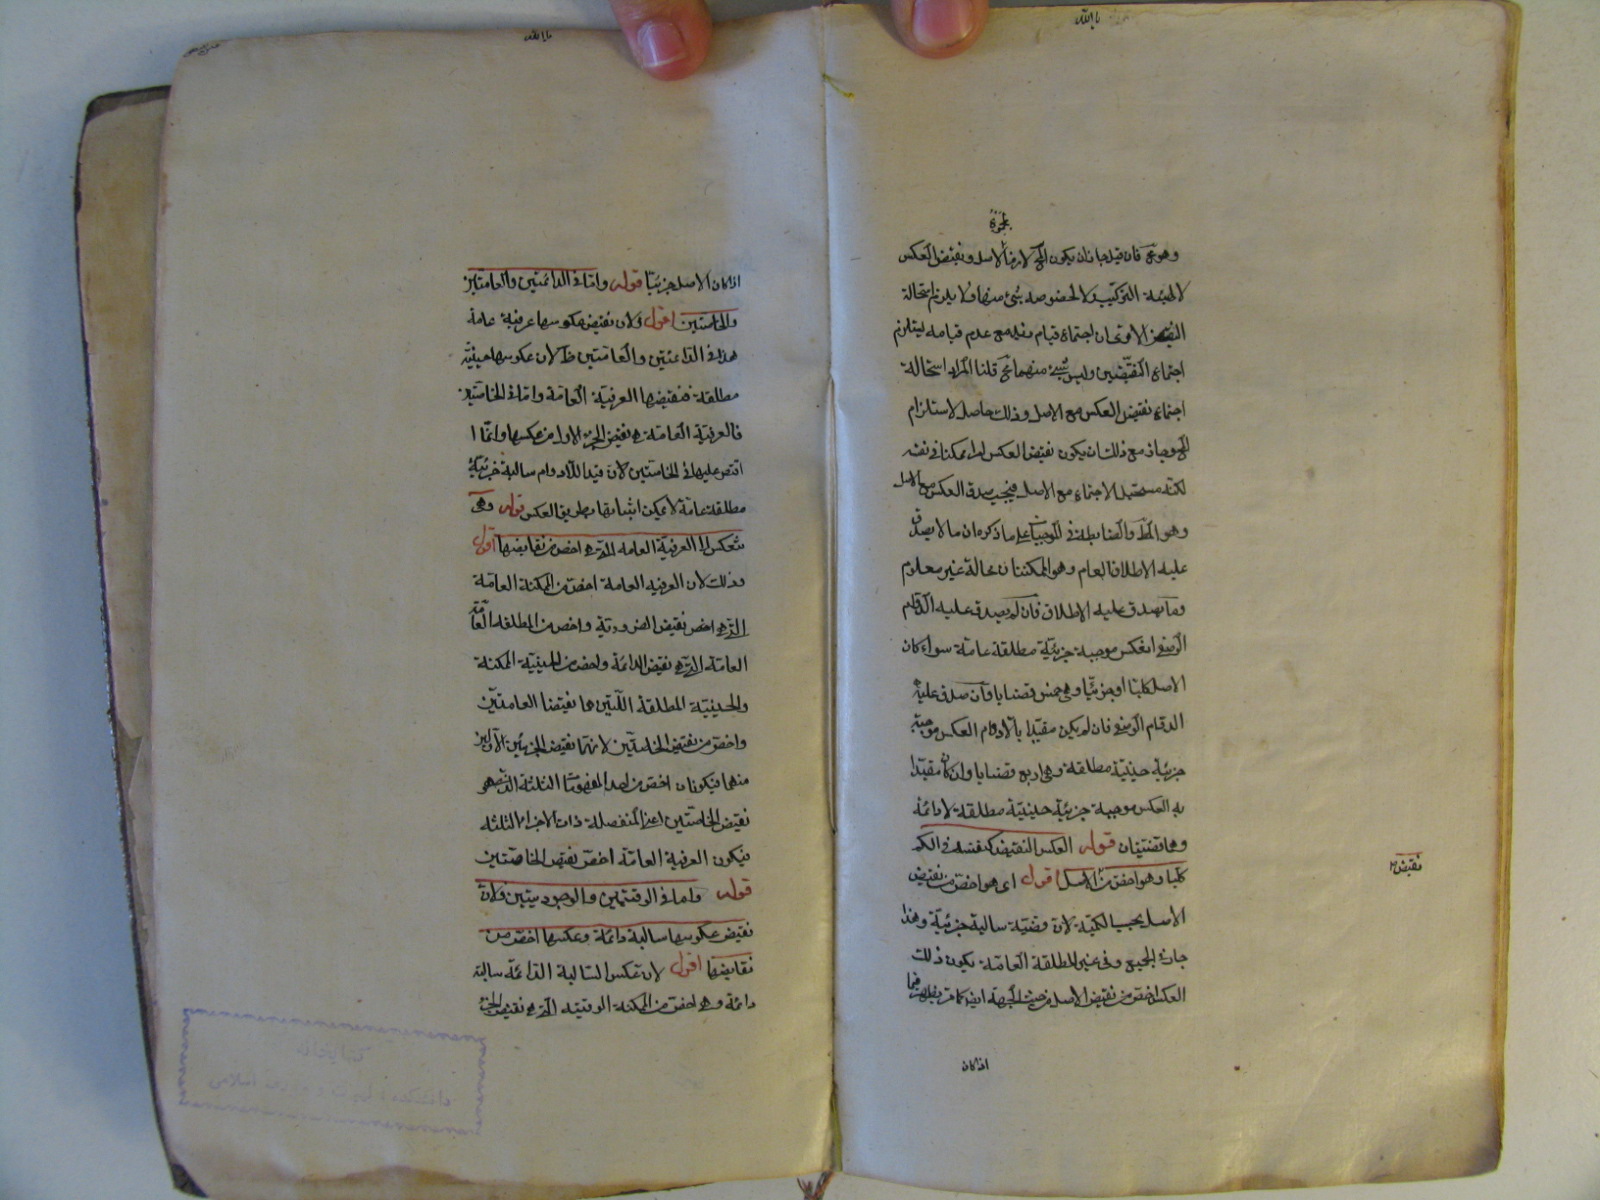 يا الله
وهو مح فان قيل جاز ان يكون المح لازما لاصل ونقيض العكس
لا لهيئة التركيب ولا لخصوصه شئ منهما ولا يلزم استحالة
اجتماع النقيضين وليس شئ منهما مح قلنا المراد استحالة
اجتماع نقيض العكس مع الاصل وذلك حاصل لاستلزام
المح وجاز مع ذلك ان يكون نقيض العكس امرا ممكنا في نفسه
لكنه مستحيل الاجتماع مع الاصل فيجب صدق العكس مع الاصل
وهو المط والضابطة في الموجبات على ما ذكره ان ما لا يصدق
عليه الاطلاق العام وهو الممكنتان حاله غير معلوم
وما يصدق عليه الاطلاق فان لم يصدق عليه الدوام
الوصفي انعكس موجبة جزئية مطلقة عامة سواء كان
الاصل كليا او جزئيا وهي خمس قضايا وان صدق عليه
الدوام الوصفي فان لم يكن مقيدا باللادوام العكس موجبة
جزئية حينية مطلقة وهي اربع قضايا وان كان مقيدا
به العكس موجبة جزئية حينية مطلقة لا دائمة
وهما قضيتان قوله العكس النقيض كنفسه في الكم
كليا وهو اخص من الاصل اقول اى هو اخص من نقيض
الاصل بحسب الكمية لانه قضية سالبة جزئية وهذا
جار في الجميع وفي غير المطلقة العامة يكون ذلك
العكس اخص من نقيض الاصل من حيث الجهة ايضا كما مر يظهر فيما
نقيض
اذا كان
يا الله
اذا كان الاصل جزئيا قوله واما في الدائمتين والعامتين
والخاصتين اقول ولان نقيض عكوسها عرفية عامة
هذا في الدائمتين والعامتين ظ لان عكوسها حينية
مطلقة فنقيضها العرفية العامة واما في الخاصتين
فالعرفية العامة هي نقيض الجزء الاول من عكسها وانما ا
اقتصر عليها في الخاصتين لان قيد اللادوام سالبة جزئية
مطلقة عامة لا يمكن اثباتها بطريق العكس قوله وهي
تنعكس الى العرفية العامة التي هي اخص من نقايضها اقول
وذلك لان العرفية العامة اخص من الممكنة العامة
التي هي اخص نقيض الضرورية واخص من المطلقة العامة
العامة التي هي نقيض الدائمة واخص من الحينية الممكنة
والحينية المطلقة اللتين هما نقيضا العامتين
واخص من نقيض الخاصتين لانهما نقيض الجزئين الاولين
منهما فيكونان اخص من احد المفهومات الثلثة الذي هو
نقيض الخاصتين اعنى المنفصلة ذات الاجزاء الثلثة
فيكون العرفية العامة اخص نقيض الخاصتين
قوله واما في الوقتيتين والوجوديتين فلان
نقيض عكوسها سالبة دائمة وعكسها اخص من
نقايضها اقول لان عكس السالبة الدائمة سالبة
دائمة وهي اخص من الممكنة الوقتية التي هي نقيض الجزء